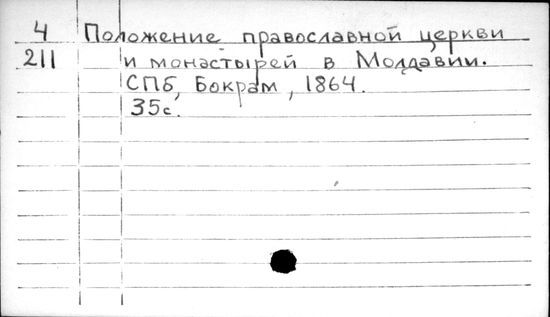 4 Положение православной церкви
211 и монастырей в Молдавии.
СПб, Бокрам, 1864.
35с.